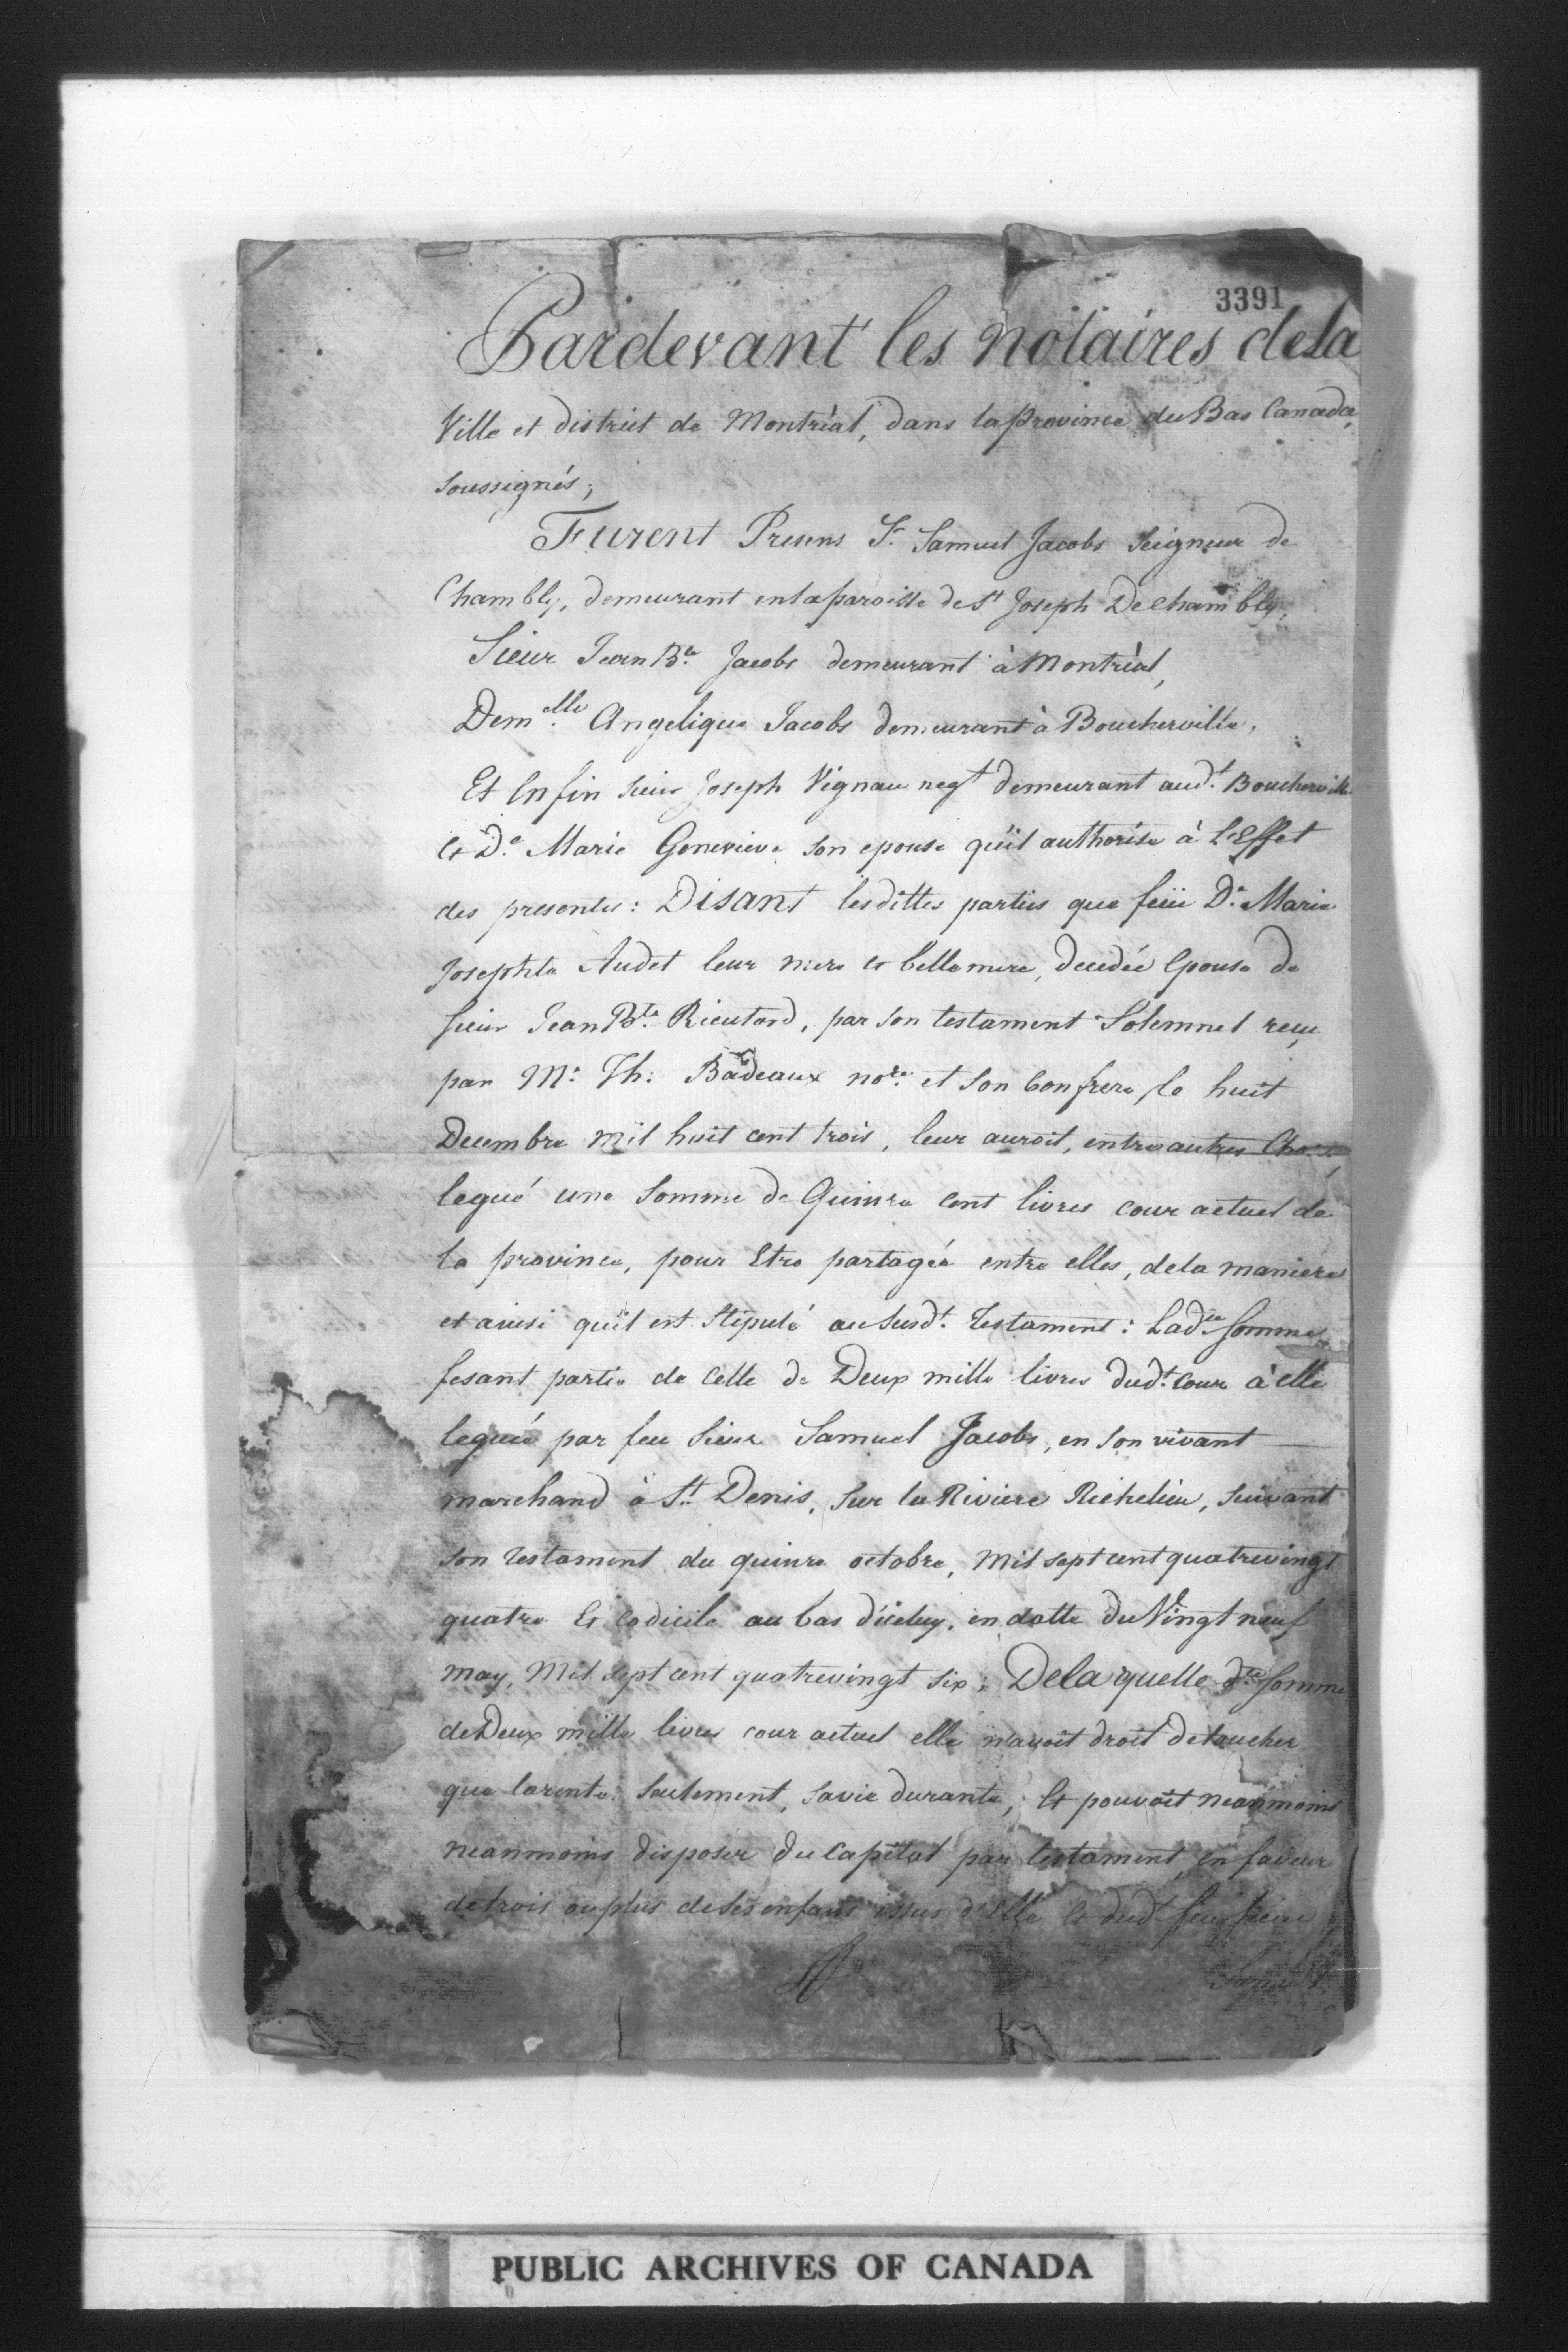 3391
Pardevant les notaires dela
Ville et district de Montréal, dans la province du Bas Canada,
soussignés;
Furent Presens Sr. Samuel Jacobs Seigneur de
Chambly, demeurant en la paroisse de St Joseph De Chambly,
Sieur Jean Bte. Jacobs demeurant à Montréal,
Demelle. Angelique Jacobs demeurant à Boucherville,
Et Enfin sieur Joseph Vignau negt demeurant audt. Boucherville
et De. Marie Genevieve son epouse qu'il authorise à l'Effet
des presentes: Disant lesdittes parties que feüe De. Marie
Josephte Audet leur mere et belle mere, decedée Epouse de
sieur Jean Bte. Rieutord, par son testament Solemnel reçu
par Mr. Th: Badeaux nore. et son Confrere, le huit
Decembre mil huit cent trois, leur auroit, entre autres Choses,
legué une Somme de Quinze cent livres cour actuel de
la province, pour Etre partagée entre elles, dela maniere
et ainsi qu'il est Stipulé au susdt. testament: Ladte Somme
fesant partie de Celle de Deux mille livres dudt. Cour à elle
leguée par feu Sieur Samuel Jacobs, en son vivant
marchand à St. Denis, sur la Riviere Richelieu, suivant
son testament du quinze octobre, mil sept cent quatrevingt
quatre Et Codicile au bas d'iceluy, en datte du Vingt neuf
may, Mil sept cent quatrevingt six; De la quelle dte Somme
de Deux mille livres cour actuel elle n'avoit droit de toucher
que la rente seulement, sa vie durante, Et pouvoit neanmoins
neanmoins disposer du Capital par testament, en faveur
de trois ou plus de ses enfans issus d'Elle et dudt feu sieur
Samuel
PUBLIC ARCHIVES OF CANADA